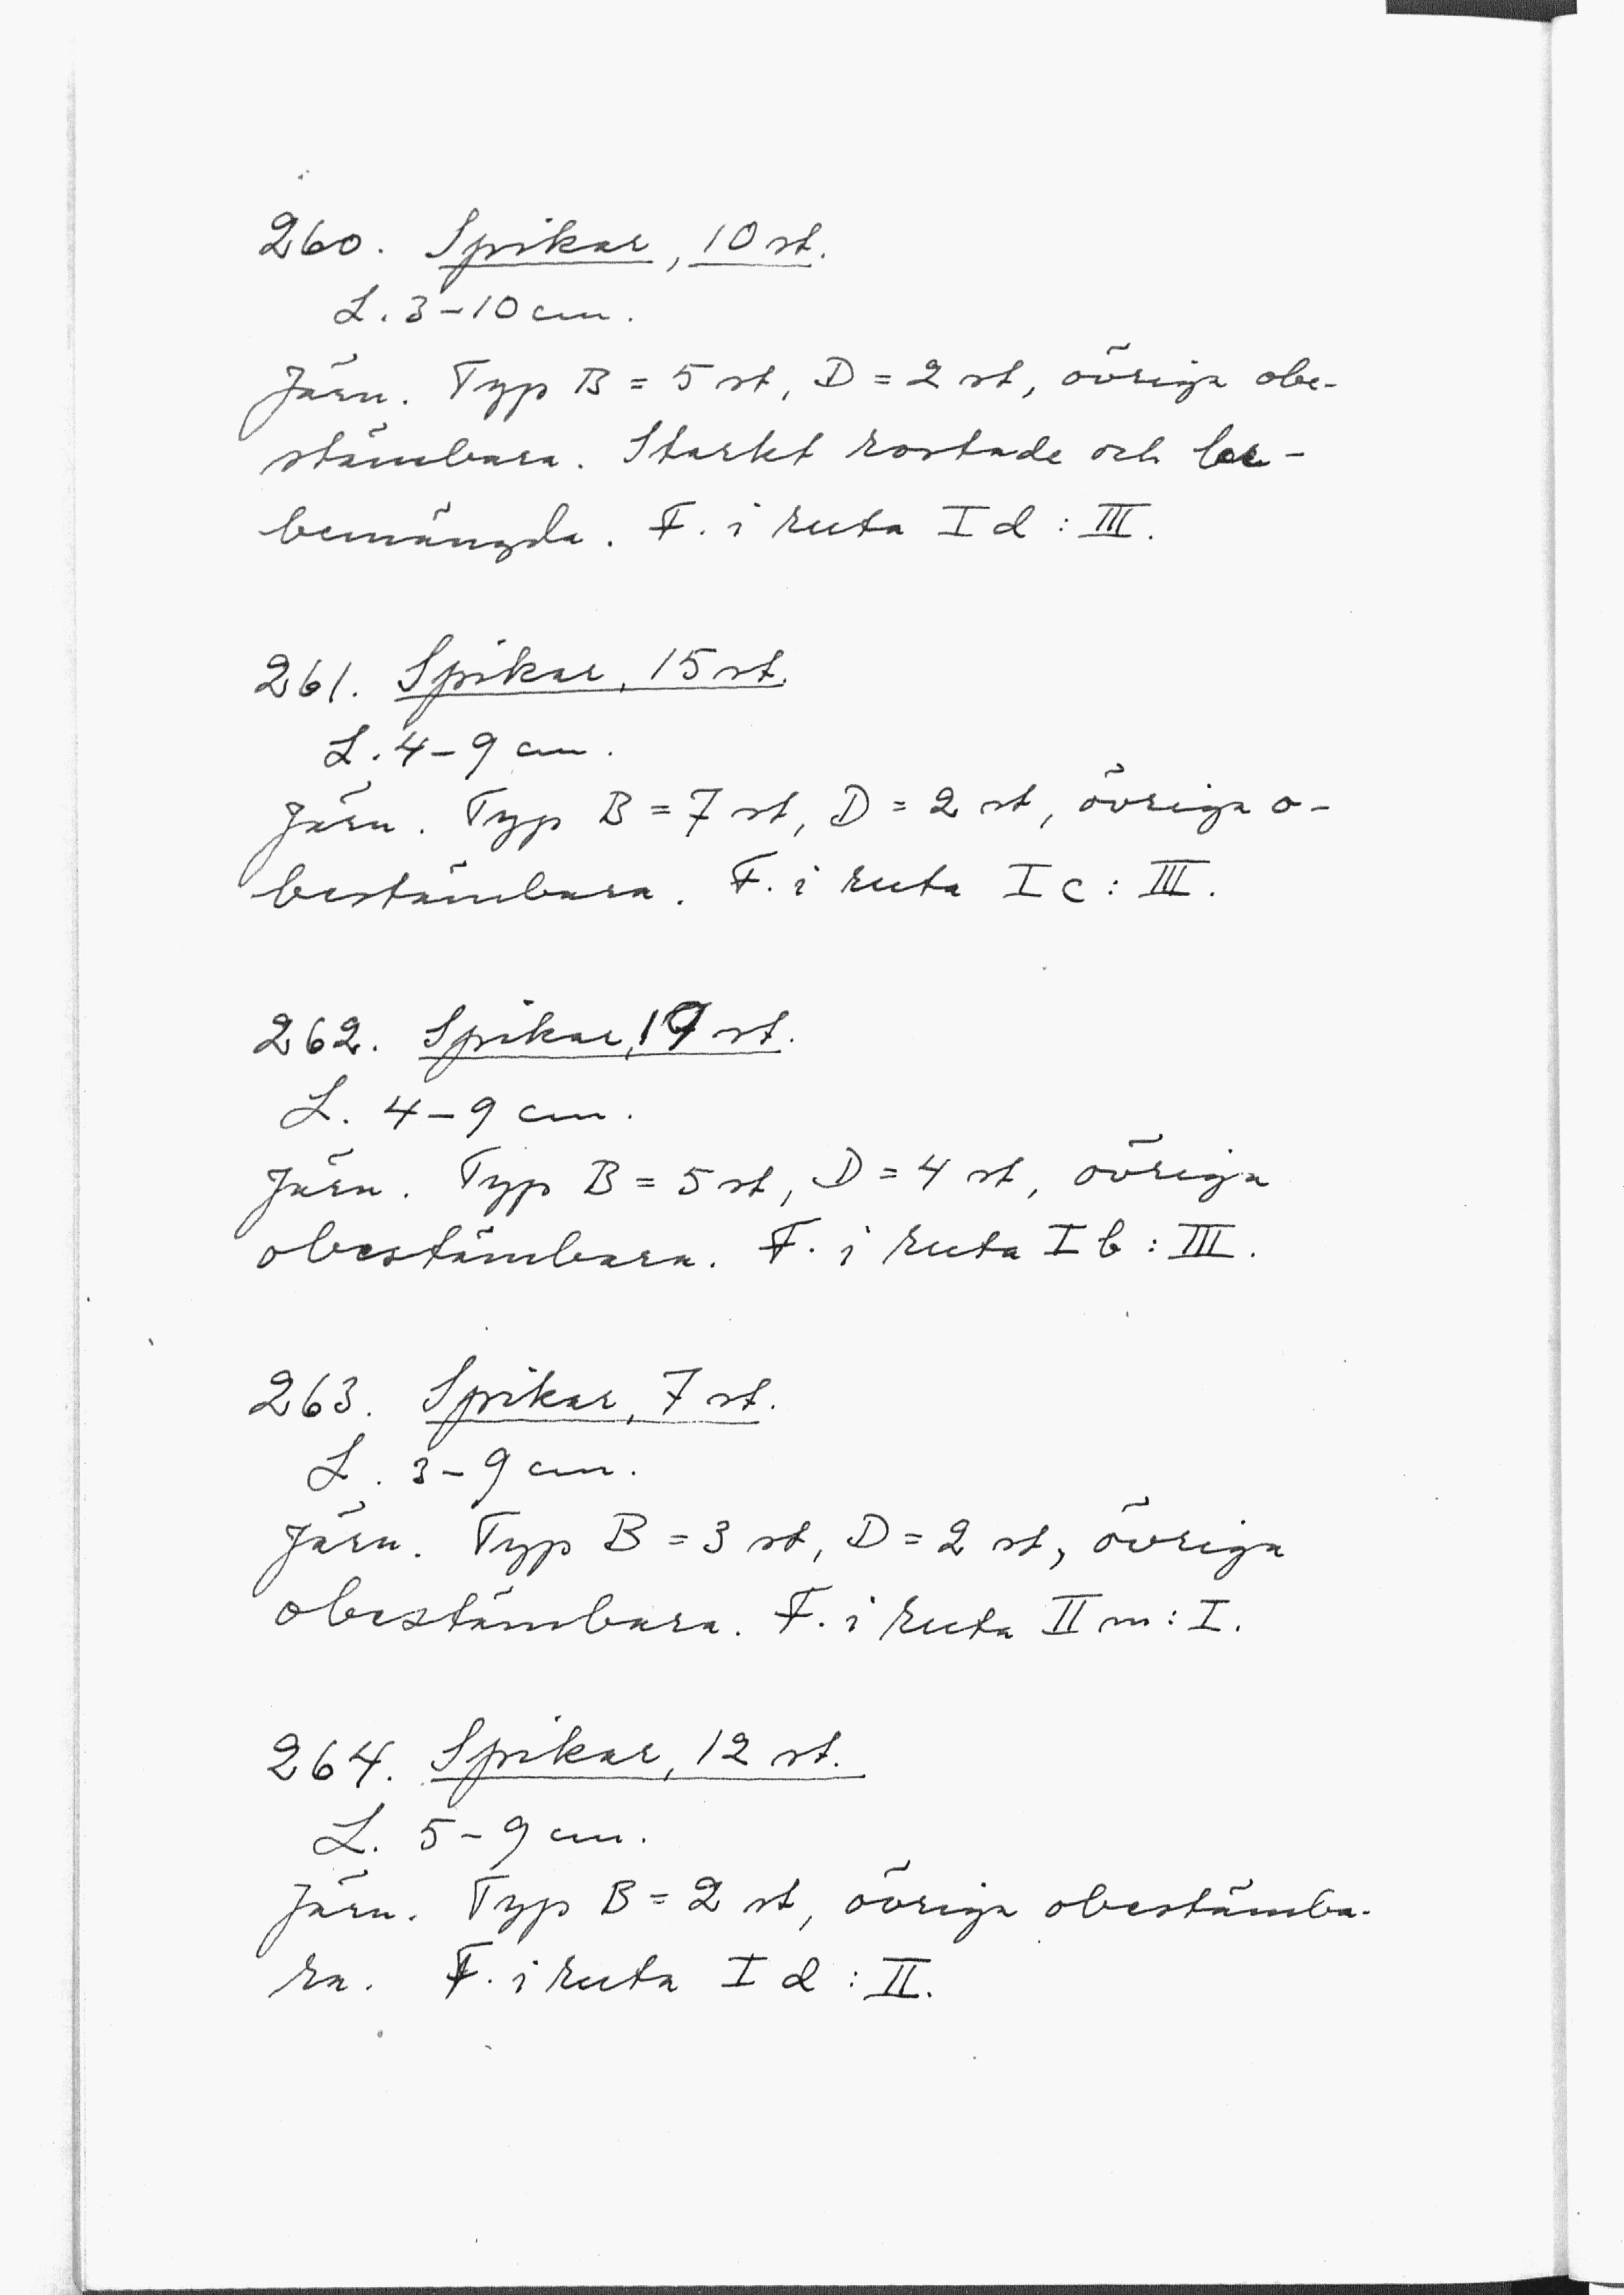 260. Spikar, 10 st.
L. 3-10 cm.
Järn. Typ B = 5 st, D = 2 st, övriga obe-
stämbara. Starkt rostade och ler-
bemängda. F. i ruta I d : III.
261. Spikar, 15 st.
L. 4-9 cm.
Järn. Typ B = 7 st, D = 2 st, övriga o-
bestämbara. F. i ruta I c : III.
262. Spikar, st.
L. 4-9 cm.
Järn. Typ B = 5 st, D = 4 st, övriga
obestämbara. F. i ruta I b : III.
263. Spikar, 7 st.
L. 3-9 cm.
Järn. Typ B = 3 st, D = 2 st, övriga
obestämbara. F. i ruta II m : I.
264. Spikar, 12 st.
L. 5-9 cm.
Järn. Typ B = 2 st, övriga obestämba-
ra. F. i ruta I d : II.